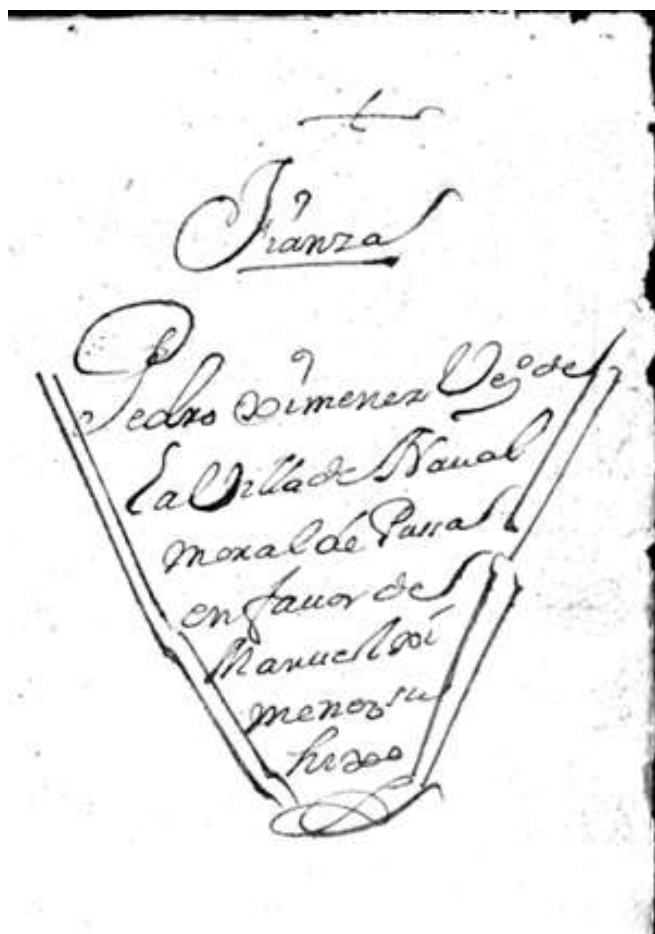 Fianza
Pedro Ximenez Vº de
La Villa de Naval
moral de Pussa
en favor de
Manuel Xi
menez su
hixo